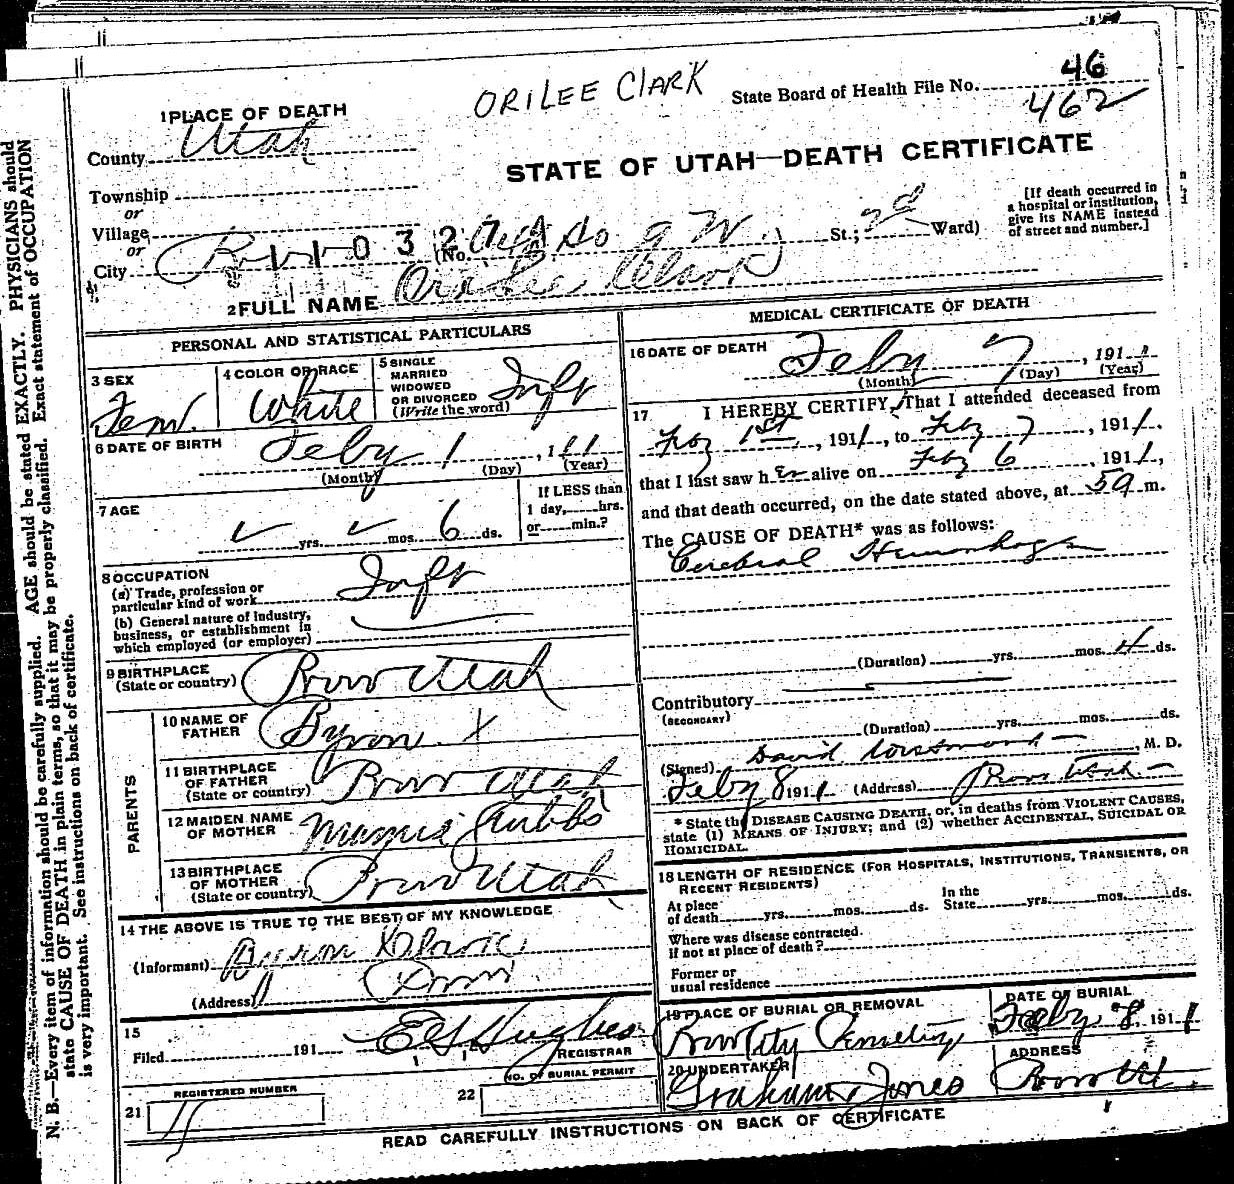 ORILEE CLARK
State Board of Health File No. 46
462
1 PLACE OF DEATH
County Utah
STATE OF UTAH—DEATH CERTIFICATE
Township
or
Village
or
City Provo (No. So 9 W. St.; 2d Ward)
1 1 0 3 2 7
[If death occurred in
a hospital or institution,
give its NAME instead
of street and number.]
2 FULL NAME Orilee Clark
PERSONAL AND STATISTICAL PARTICULARS
3 SEX
Fem.
4 COLOR OR RACE
White
5 SINGLE
MARRIED
WIDOWED
OR DIVORCED
(Write the word)
Inft
6 DATE OF BIRTH
Feby 1, 1911
(Month) (Day) (Year)
7 AGE
yrs. mos. 6 ds.
If LESS than
1 day, hrs.
or min.?
8 OCCUPATION
(a) Trade, profession or
particular kind of work Inft
(b) General nature of industry,
business, or establishment in
which employed (or employer)
9 BIRTHPLACE
(State or country) Provo Utah
PARENTS
10 NAME OF
FATHER Byron X
11 BIRTHPLACE
OF FATHER
(State or country) Provo Utah
12 MAIDEN NAME
OF MOTHER Mamie Stubbs
13 BIRTHPLACE
OF MOTHER
(State or country) Provo Utah
14 THE ABOVE IS TRUE TO THE BEST OF MY KNOWLEDGE
(Informant) Byron X Clark
(Address) Provo
15
Filed 191
E G Hughes
REGISTRAR
REGISTERED NUMBER
21 11
NO. OF BURIAL PERMIT
22
MEDICAL CERTIFICATE OF DEATH
16 DATE OF DEATH
Feby 7, 1911
(Month) (Day) (Year)
17 I HEREBY CERTIFY, That I attended deceased from
Feby 1st, 1911, to Feby 7, 1911.
that I last saw her alive on Feby 6, 1911,
and that death occurred, on the date stated above, at 5 a m.
The CAUSE OF DEATH* was as follows:
Cerebral Hemorrhage
(Duration) yrs. mos. 4 ds.
Contributory
(SECONDARY)
(Duration) yrs. mos. ds.
(Signed) David Westwood, M. D.
Feby 8 1911 (Address) Provo Utah
* State the DISEASE CAUSING DEATH, or, in deaths from VIOLENT CAUSES,
state (1) MEANS OF INJURY; and (2) whether ACCIDENTAL, SUICIDAL OR
HOMICIDAL.
18 LENGTH OF RESIDENCE (FOR HOSPITALS, INSTITUTIONS, TRANSIENTS, OR
RECENT RESIDENTS)
At place
of death yrs. mos. ds.
In the
State yrs. mos. ds.
Where was disease contracted
if not at place of death?
Former or
usual residence
19 PLACE OF BURIAL OR REMOVAL
Provo City Cemetery
DATE OF BURIAL
Feby 8, 1911
20 UNDERTAKER
Graham & Jones
ADDRESS
Provo Ut.
READ CAREFULLY INSTRUCTIONS ON BACK OF CERTIFICATE
N. B.—Every item of information should be carefully supplied. AGE should be stated EXACTLY. PHYSICIANS should
state CAUSE OF DEATH in plain terms, so that it may be properly classified. Exact statement of OCCUPATION
is very important. See instructions on back of certificate.